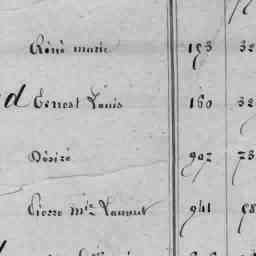 René marie 193 32
d Ernest Louis 160 32
Désiré 907 73
Pierre Mie Laurent 941